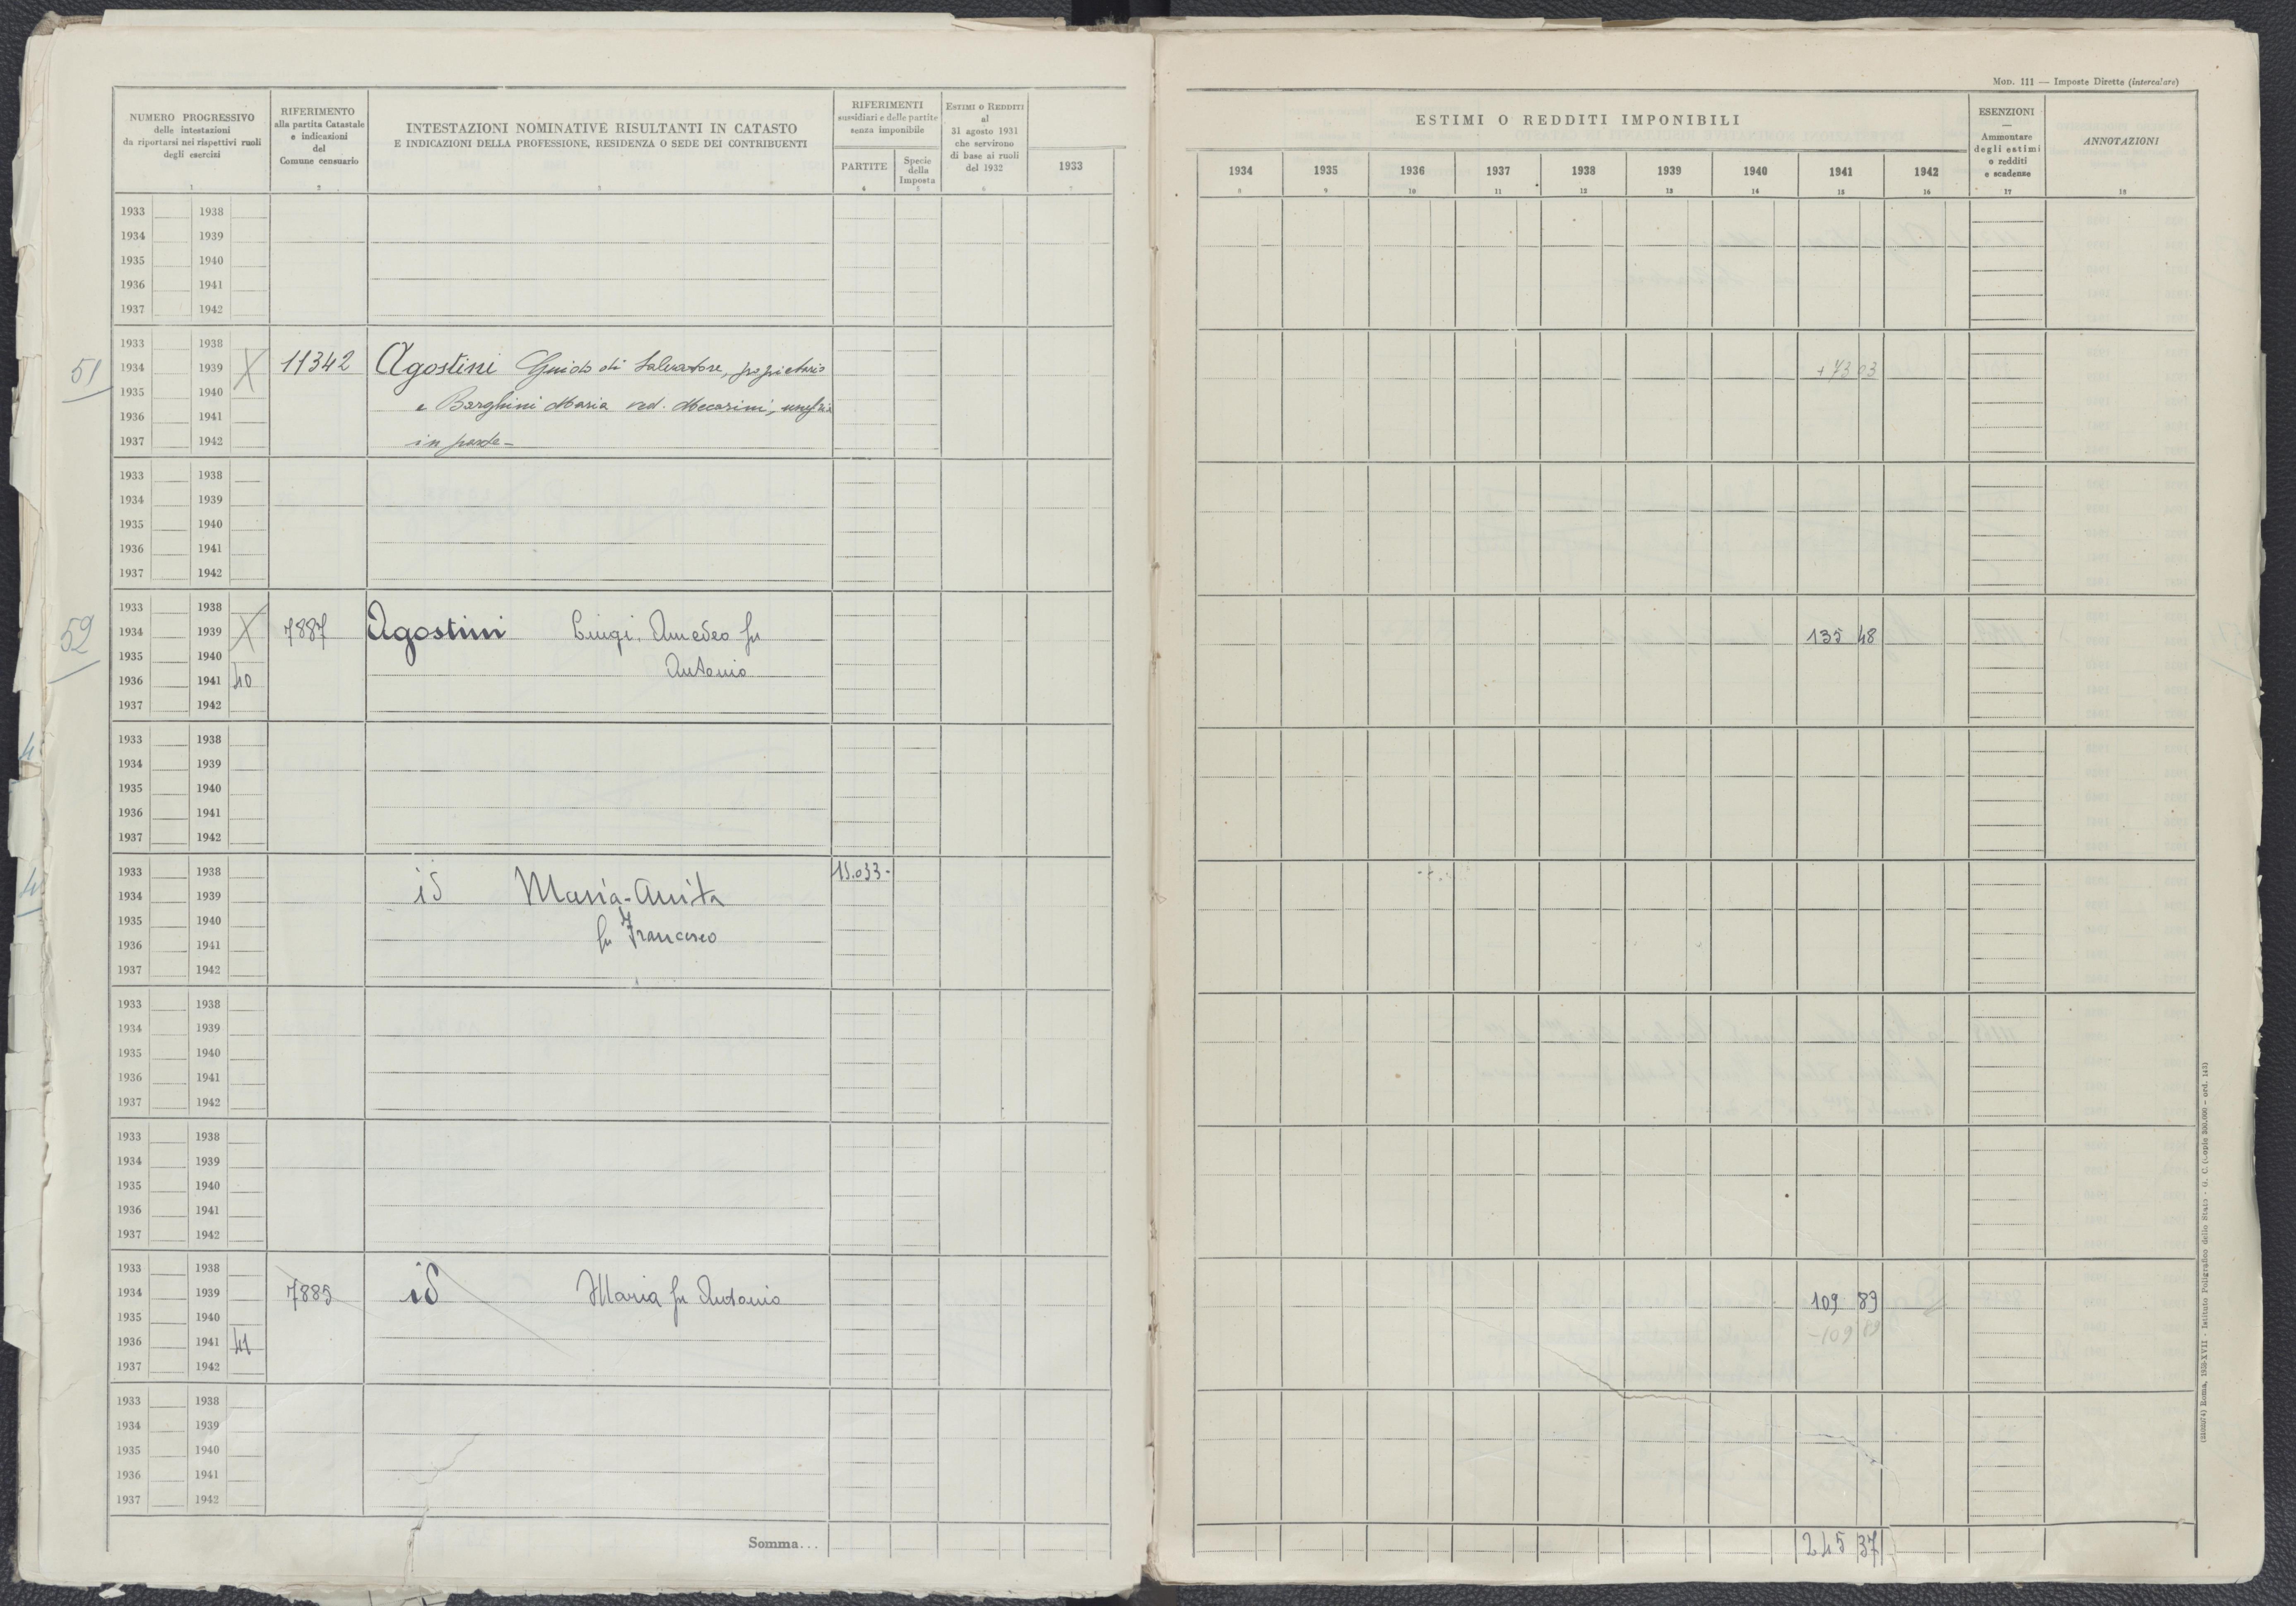 NUMERO PROGRESSIVO
delle intestazioni
da riportarsi nei rispettivi ruoli
degli esercizi
1
RIFERIMENTO
alla partita Catastale
e indicazioni
del
Comune censuario
2
INTESTAZIONI NOMINATIVE RISULTANTI IN CATASTO
E INDICAZIONI DELLA PROFESSIONE, RESIDENZA O SEDE DEI CONTRIBUENTI
3
RIFERIMENTI
sussidiari e delle partite
senza imponibile
PARTITE
4
Specie
della
Imposta
5
ESTIMI O REDDITI
al
31 agosto 1931
che servirono
di base ai ruoli
del 1932
6
1933
7
MOD. 111 — Imposte Dirette (intercalare)
ESTIMI O REDDITI IMPONIBILI
1934 1935 1936 1937 1938 1939 1940 1941 1942
8 9 10 11 12 13 14 15 16
ESENZIONI
—
Ammontare
degli estimi
o redditi
e scadenze
17
ANNOTAZIONI
18
1933 1938
1934 1939
1935 1940
1936 1941
1937 1942
1933 1938
51 1934 1939 X 11342 Agostini Guido di Salvatore, proprietario +73 03
1935 1940 e Barghini Maria ved. Mecarini,
1936 1941
1937 1942 in parte -
1933 1938
1934 1939
1935 1940
1936 1941
1937 1942
1933 1938
52 1934 1939 X 7887 Agostini Luigi, Amedeo fu 135 48
1935 1940 Antonio
1936 1941 40
1937 1942
1933 1938
1934 1939
1935 1940
1936 1941
1937 1942
1933 1938 15.033-
1934 1939 id Maria-Anita
1935 1940
1936 1941 fu Francesco
1937 1942
1933 1938
1934 1939
1935 1940
1936 1941
1937 1942
1933 1938
1934 1939
1935 1940
1936 1941
1937 1942
1933 1938
1934 1939 7885 id Maria fu Antonio 109 89
1935 1940 -109 89
1936 1941 41
1937 1942
1933 1938
1934 1939
1935 1940
1936 1941
1937 1942
Somma... 245 37
Roma, 1938-XVII - Istituto Poligrafico dello Stato - G. C. (Copie 300.000 - ord. 143)